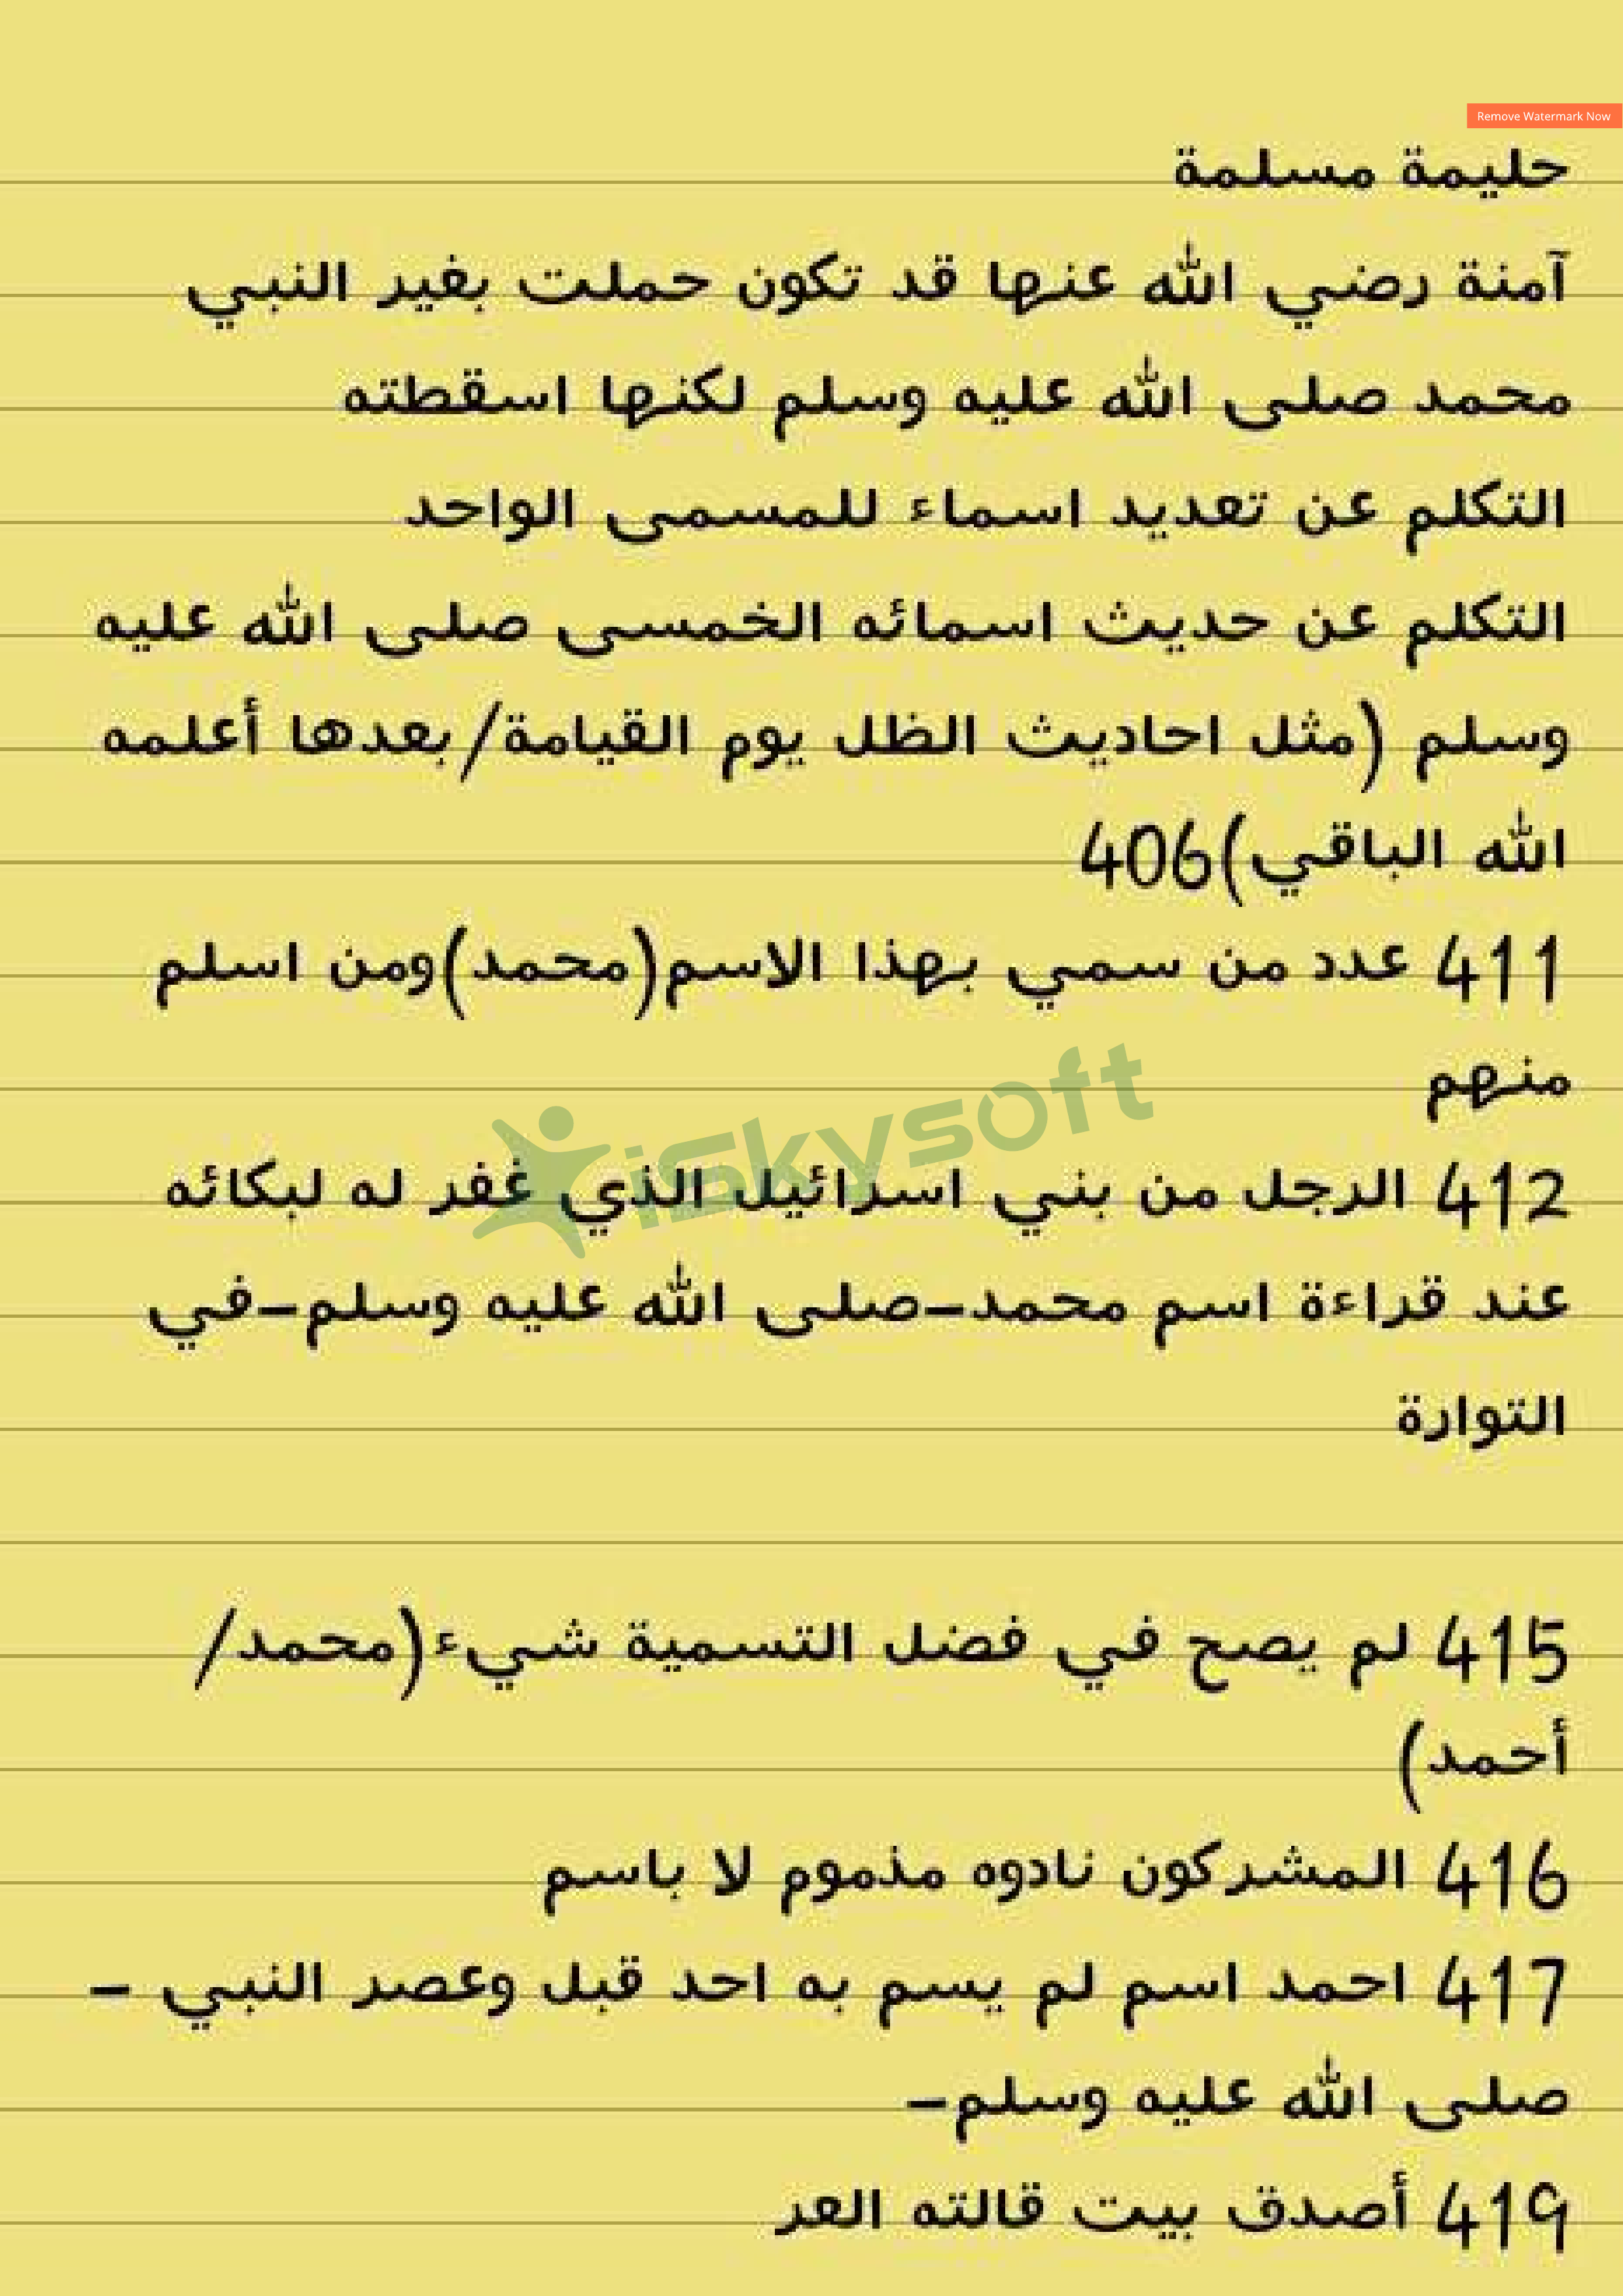 Remove Watermark Now
حليمة مسلمة
آمنة رضي الله عنها قد تكون حملت بغير النبي
محمد صلى الله عليه وسلم لكنها اسقطته
التكلم عن تعديد اسماء للمسمى الواحد
التكلم عن حديث اسمائه الخمسى صلى الله عليه
وسلم (مثل احاديث الظل يوم القيامة/بعدها أعلمه
الله الباقي)406
411 عدد من سمي بهذا الاسم(محمد)ومن اسلم
منهم
412 الرجل من بني اسرائيل الذي غفر له لبكائه
عند قراءة اسم محمد-صلى الله عليه وسلم-في
التوارة
iskysoft
415 لم يصح في فضل التسمية شيء(محمد/
أحمد)
416 المشركون نادوه مذموم لا باسم
417 احمد اسم لم يسم به احد قبل وعصر النبي -
صلى الله عليه وسلم-
419 أصدق بيت قالته العر